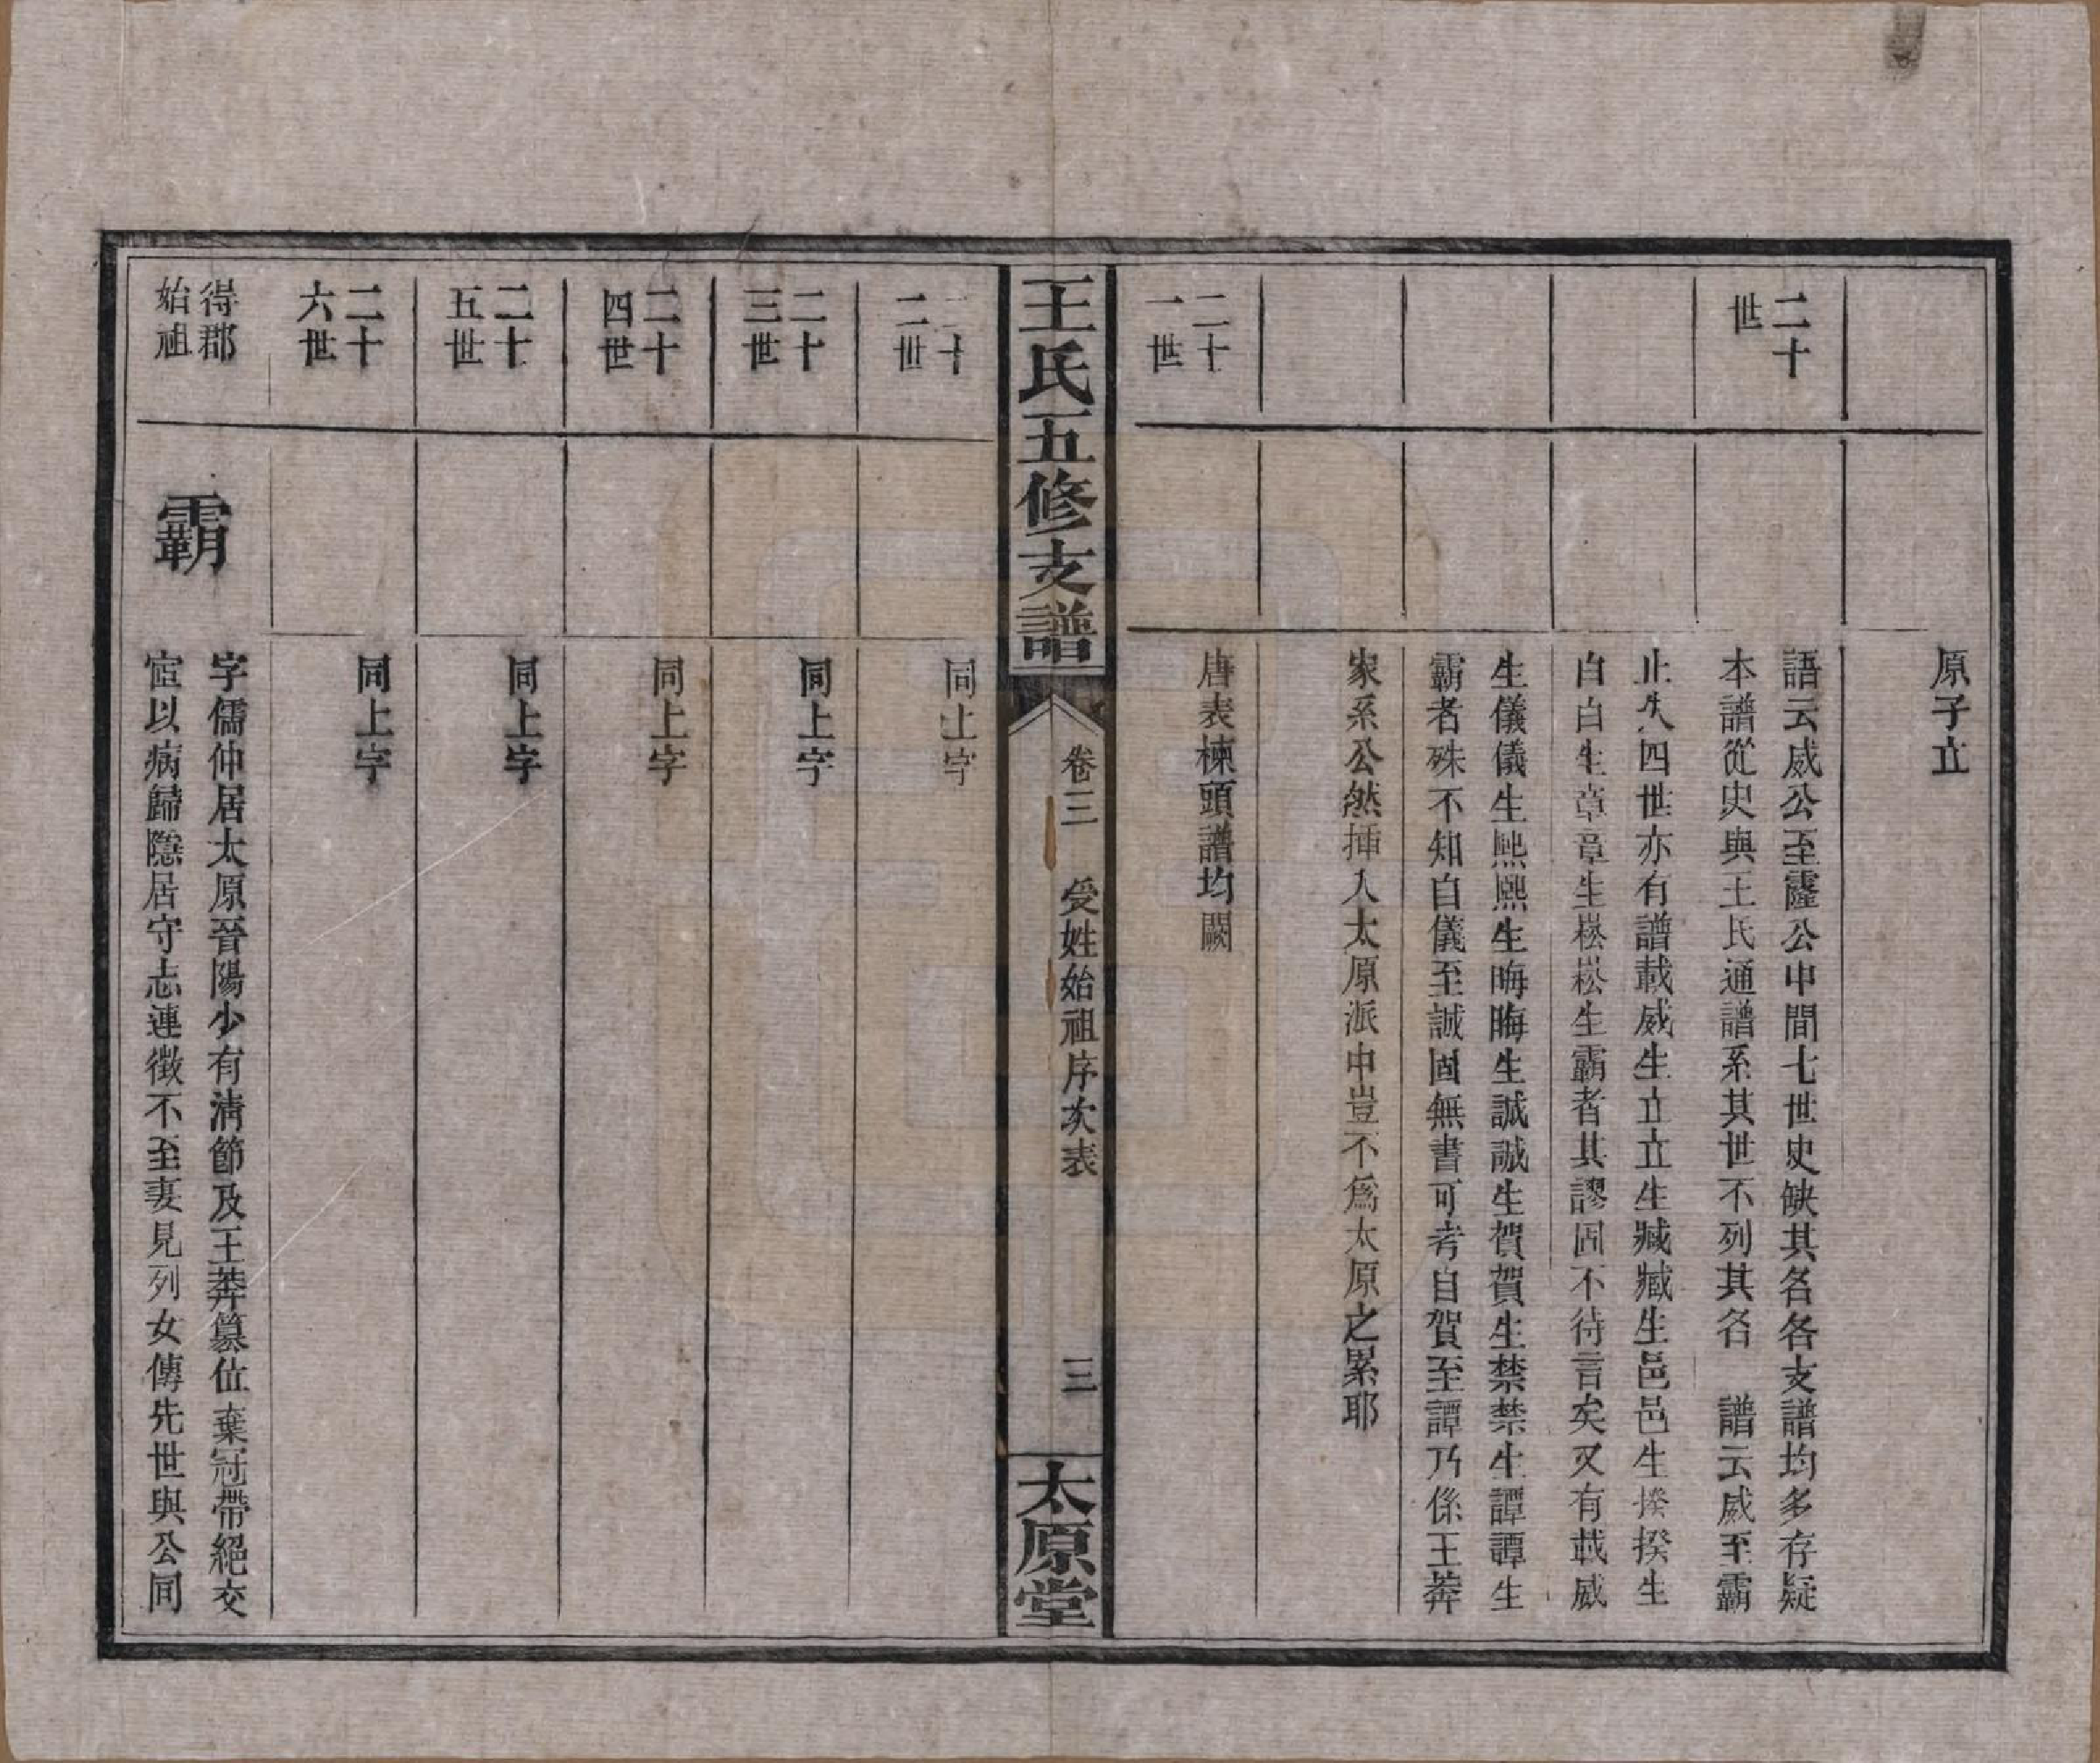 原子立
二十
世
語云威公至霳公中間七世史缺其名各支譜均多存疑
本譜從史與王氏通譜系其世不列其名　譜云威至霸
止失四世亦有譜載威生立立生臧臧生邑邑生揆揆生
白白生章章生崧崧生霸者其謬固不待言矣又有載威
生儀儀生熈熈生晦晦生誠誠生賀賀生禁禁生譚譚生
霸者殊不知自儀至誠固無書可考自賀至譚乃係王莽
家系公然插入太原派中豈不爲太原之累耶
二十
一世
唐表楝頭譜均闕
王氏五修支譜
卷三　受姓始祖序次表
三
太原堂
二十
二世
同上字
二十
三世
同上字
二十
四世
同上字
二十
五世
同上字
二十
六世
同上字
得郡
始祖
霸
字儒仲居太原晉陽少有清節及王莽篡位棄冠帶絕交
宦以病歸隱居守志連徵不至妻見列女傳先世與公同